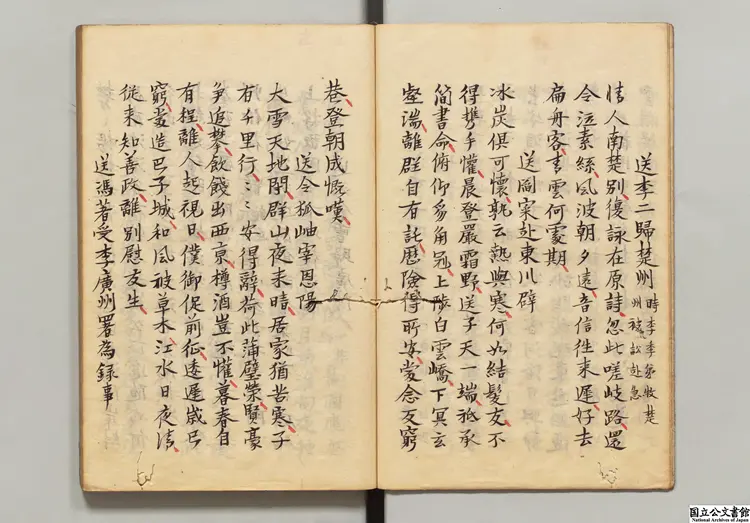 送李二歸楚州 時李季弟牧楚
州被訟赴急
情人南楚別復詠在原詩忽此嗟岐路還
令泣素絲風波朝夕遠音信徃来遲好去
扁舟客青雲何處期
送閻寀赴東川辟
冰炭俱可懷孰云熱與寒何如結髮友不
得携手懽晨登嚴霜野送子天一端祗承
簡書命俯仰豸角冠上陟白雲嶠下冥玄
壑湍離群自有託歴險得所安當念反窮
巷登朝成慨嘆
送令狐岫宰恩陽
大雪天地閉群山夜来晴居家猶苦寒子
有千里行〻〻安得辭荷此蒲璧榮賢豪
爭追攀飲餞出西京樽酒豈不懽暮春自
有程離人起視日僕御促前征逶遲歲已
窮當造巴子城和風被草木江水日夜清
従来知善政離別慰友生
送馮著受李廣州署為録事
国立公文書館
National Archives of Japan